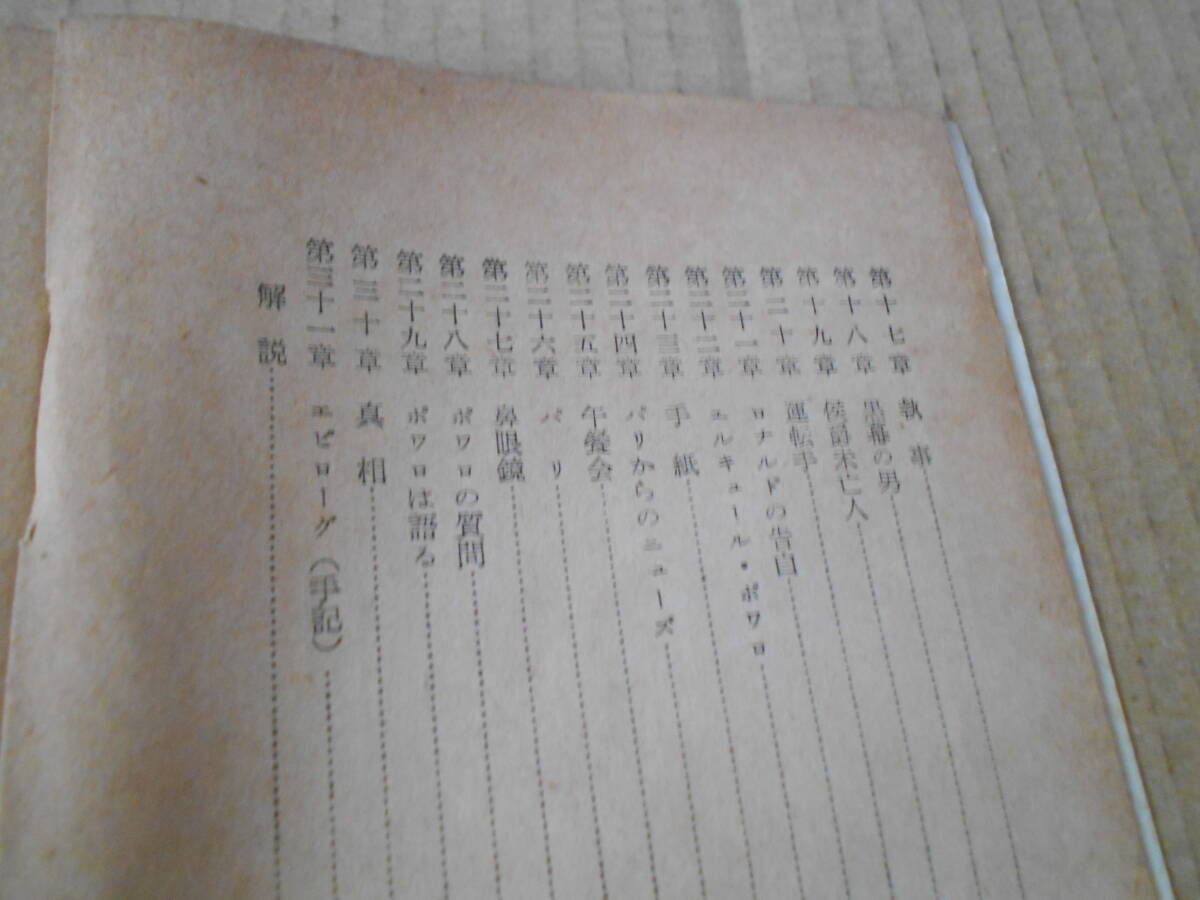 第十七章 執事
第十八章 黒幕の男
第十九章 侯爵未亡人
第二十章 運転手
第二十一章 ロナルドの告白
第二十二章 エルキュール・ポワロ
第二十三章 手紙
第二十四章 パリからのニューズ
第二十五章 午餐会
第二十六章 パリ
第二十七章 鼻眼鏡
第二十八章 ポワロの質問
第二十九章 ポワロは語る
第三十章 真相
第三十一章 エピローグ（手記）
解説